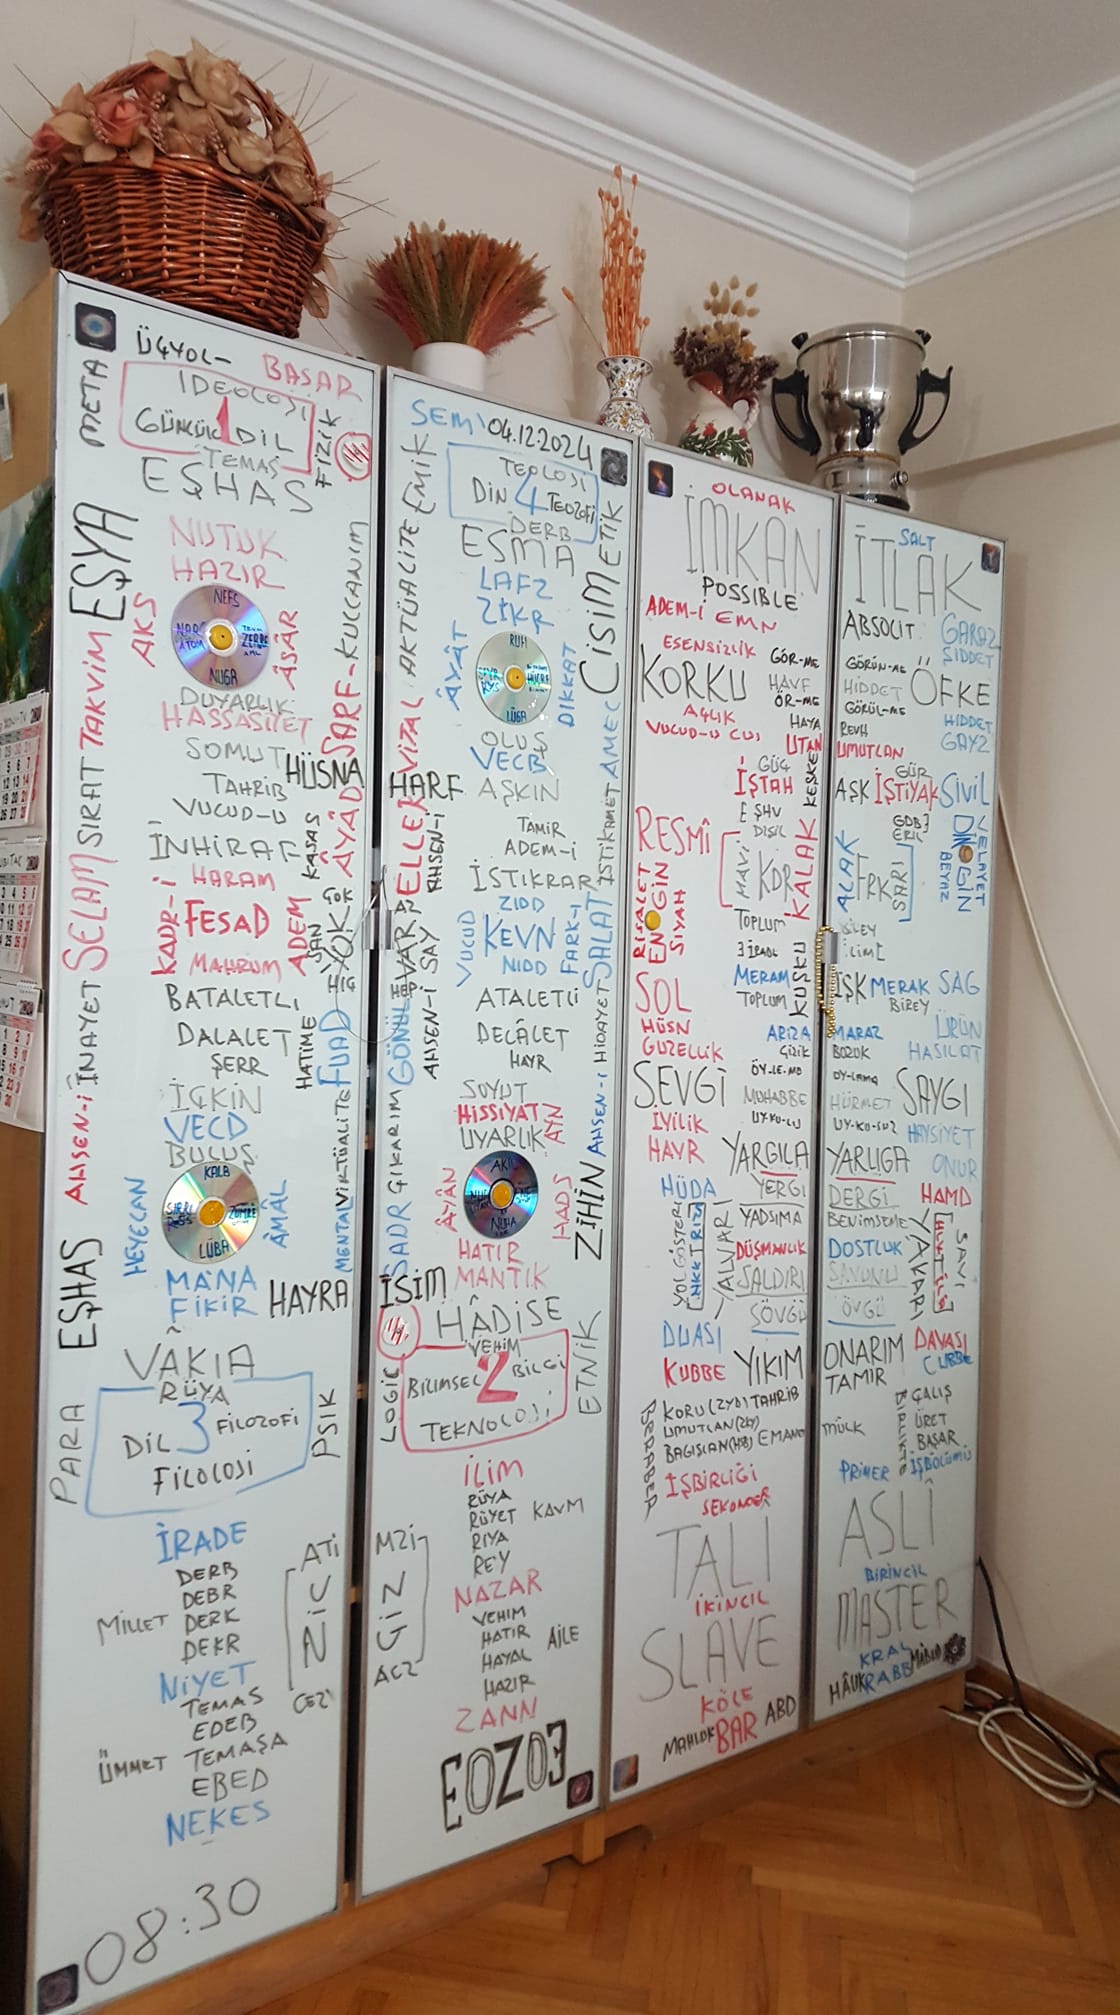 ÜÇYOL-
BASAR
META
İDEOLOJİ
GÜNCÜL 1 DİL
TEMAS
FİZİK
EŞHAS
EŞYA
NUTUK
HAZIR
AKS
NEFS
NUGA
ÂSÂR
SARF-KULLANIM
DUYARLIK
HASSASİYET
SOMUT
HÜSNA
TAHRİB
VUCUD-U
İNHİRAF
KASAS
ÂYÂD
HARAM
KADR-İ
FESAD
ADEM
MAHRUM
ÇOK
YOK
HİÇ
AHSEN-İ İNAYET SELAM SIRAT TAKVİM
BATALETLİ
DALALET
ŞERR
HATİME
FUAD
İÇKİN
VECD
BULUŞ
MENTAL VİRTÜALİTE
HEYECAN
KALB
ZÜMRE
LÜBA
ÂMÂL
EŞHAS
MANA
FİKİR
HAYRA
VAKIA
RÜYA
DİL 3 FİLOZOFİ
FİLOLOJİ
PARA
PSIK
İRADE
DERB
DEBR
MİLLET
DERK
DEKR
NİYET
TEMAS
EDEB
ÜMMET
TEMAŞA
EBED
NEKES
ATİ
CEZİ
08:30
SEMİ
04.12.2024
EMİK
TEOLOJİ
DİN 4 TEOZOFİ
DERB
ESMA
CİSİMETİK
LAFZ
ZİKR
AKTÜALİTE
ÂYÂT
RUH
LÜGA
DİKKAT
OLUŞ
VECB
VİZAL
HARF
AŞKIN
AMEL
TAMİR
ADEM-İ
ELLER
AHSEN-İ
İSTİKRAR
İSTİKAMET
ZIDD
VUCUD
KEVN
NIDD
FARK-I
SALAT
VAR
HEP
SAY
AHSEN-İ
GÖNÜL
ATALETLİ
DELÂLET
HAYR
AHSEN-İ HİDAYET
SOYUT
HİSSİYAT
UYARLIK
AYN
SADR ÇIKARIM
Â-YÂN
AKL
NUHA
HADS
ZİHİN
HATIR
MANTIK
İSİM
HÂDİSE
VEHİM
BİLİMSEL 2 BİLGİ
TEKNOLOJİ
LOGİC
ETNİK
İLİM
RÜYA
RÜYET
KAVM
RIYA
REY
NAZAR
VEHIM
HATIR
AİLE
HAYAL
HAZIR
ZANN
MZİ
GİZ
ACZ
EOZO3
OLANAK
İMKAN
POSSIBLE
ADEM-İ EMN
ESENSİZLİK
GÖR-ME
KORKU
HAVF
ÖR-ME
AÇLIK
HAYA
UTAN
GÜÇ
İŞTAH
KEŞKE
EŞHV
DİŞİL
RESMÎ
MAVİ
KDR
KALAK
RİSALET
ENGİN
SİYAH
TOPLUM
MERAM
TOPLUM
KUŞKU
SOL
HÜSN
GÜZELLİK
ARIZA
ÖY-LE-ME
SEVGİ
MUHABBE
İYİLİK
UY-KU-LU
HAVR
YARGILA
YERGİ
HÜDA
YADSIMA
YOL GÖSTERİ
YALVAR
DÜŞMANLIK
SALDIRI
SÖVGÜ
DUASI
KUBBE
YIKIM
KORU (ZYD) TAHRİB
UMUTLAN (ZKY)
BAGISLAN (HSB) EMANE
BERABER
İŞBİRLİĞİ
SEKONDER
TALİ
İKİNCİL
SLAVE
KÖLE
MAHLUK
BAR
ABD
SALT
İTLAK
ABSOLIT
GARAZ
ŞİDDET
GÖRÜN-ME
HİDDET
ÖFKE
GÖRÜL-ME
REVH
HİDDET
GAYZ
UMUTLAN
GÜR
AŞK
İŞTİYAK
SİVİL
ERİL
ALAK
FRK
SARI
DİNGİN
VELAYET
BEYAZ
BİREY
İŞK
MERAK
SAĞ
BİREY
MARAZ
ÜRÜN
BOZUK
HASILAT
OY-LAMA
SAYGI
HÜRMET
UY-KU-SUZ
HAYSİYET
YARLIGA
ONUR
DERGİ
HAMD
BENİMSEME
DOSTLUK
YALVARI
SAVI
SAVUNU
ÖVGÜ
ONARIM
DAVASI
CUBBE
TAMİR
ÇALIŞ
MÜLK
BİRLİKTE
ÜRET
BAŞAR
PRİMER
İŞBÖLÜMÜ
ASLÎ
BİRİNCİL
MASTER
KRAL
HÂLIK
RABB
MABUD